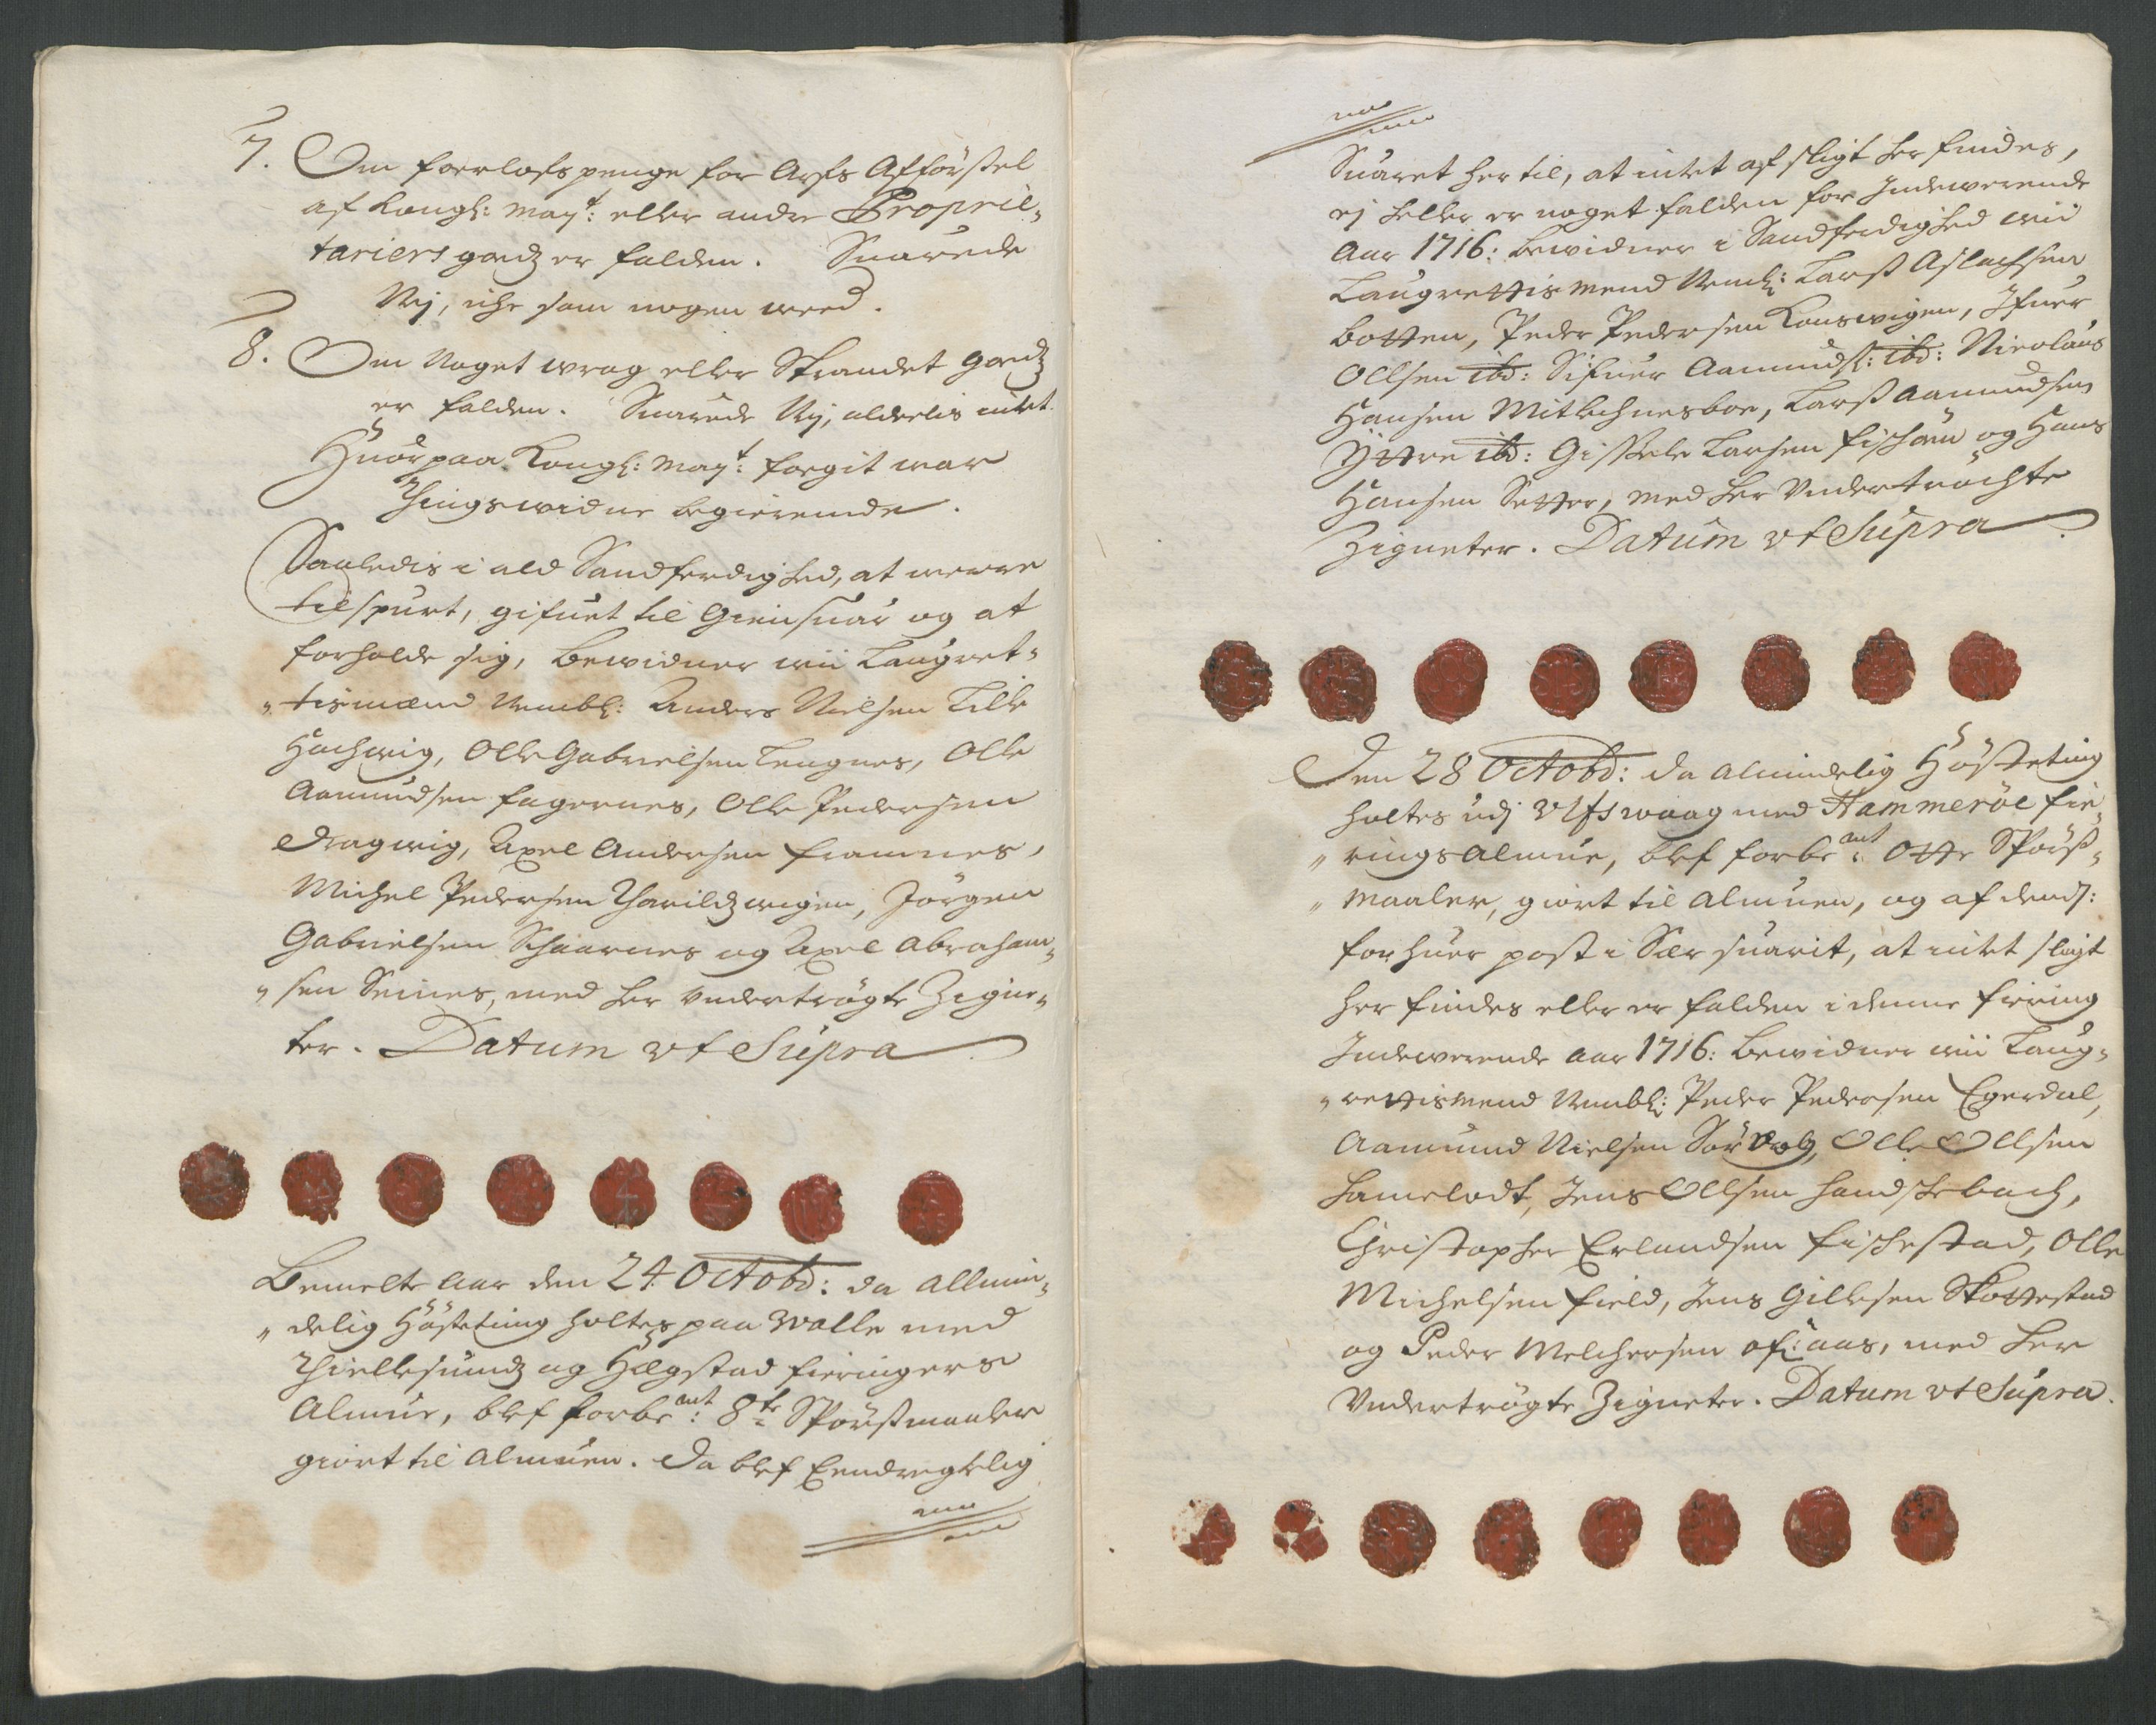 7. Om foerlofs penge for Arfs Afförßel
af Kongl: May:t eller andre Proprie-
tariers godz er falden. Suarede
Nej, iche som nogen weed.
8. Om Noget wrag eller Strandet godz
er falden. Suarede Nej, alderlis intet.
Huorpaa Kongl: May:t foegit war
Thingswidne begierende.
Saaledis i ald Sandferdighed, at werre
tilspurt, gifuet til Giensuar og at
forholde sig, Bewidner wii Laugret-
tismænd Nembl: Anders Nielsen Lille
Hochwig, Olle Gabrielsen Lengnes, Olle
Aamundsen fagernes, Olle Pedersen
Dragwig, Axel Andersen framnes,
Michel Pedersen Tharildzwigen, Jörgen
Gabrielsen Schaarnes og Axel Abraham-
sen Seines, med her undertrögte Zigne-
ter. Datum ut Supra
Bemelte Aar den 24 Octobr: da allmin-
delig Hösteting holtes paa Walle med
Thiellesundz og Hægstad fieringers
Almue, blef forbe:mt 8te Spörßmaaler
giort til Almuen. Da blef Eendregtelig
Suaret her til, at intet af sligt her findes,
ej heller er noget falden for Indewerende
Aar 1716: Bewidner i Sandferdighed wii
Laugrettismend Neml: Larß Aslachsen
Botten, Peder Pedersen Kongwigen, Ifuer
Ollsen ibd: Sifuer Aamunds: ibd: Nicolaus
Hansen Mitlichnesboe, Larß Aamundsen
Yttre ibd: Gißele Larsen fischöen og Hans
Hansen Setter, med her Undertröchte
Zigneter. Datum ut Supra
Den 28 Octobr: da almindelig Hößteting
holtes udj Ulfswaag med Hammeröe fie-
ringsalmue, blef forbe:mt Otte Spörß-
maaler, giort til Almuen, og af dends:
for huer post i Sær suarit, at intet sligt
her findes eller er falden i denne fiering
Indewerende Aar 1716: Bewidner wii Laug-
rettismend Nembl: Peder Pedersen Egerdal,
Aamund Nielsen Sör, Olle Ollsen
Hamelodt, Jens Ollsen Handschebach,
Christopher Erlandsen fischestad, Olle
Michelsen field, Jens Gillesen Skottestad
og Peder Melchersen af: aas, med her
Undertrögte Zigneter. Datum ut Supra.